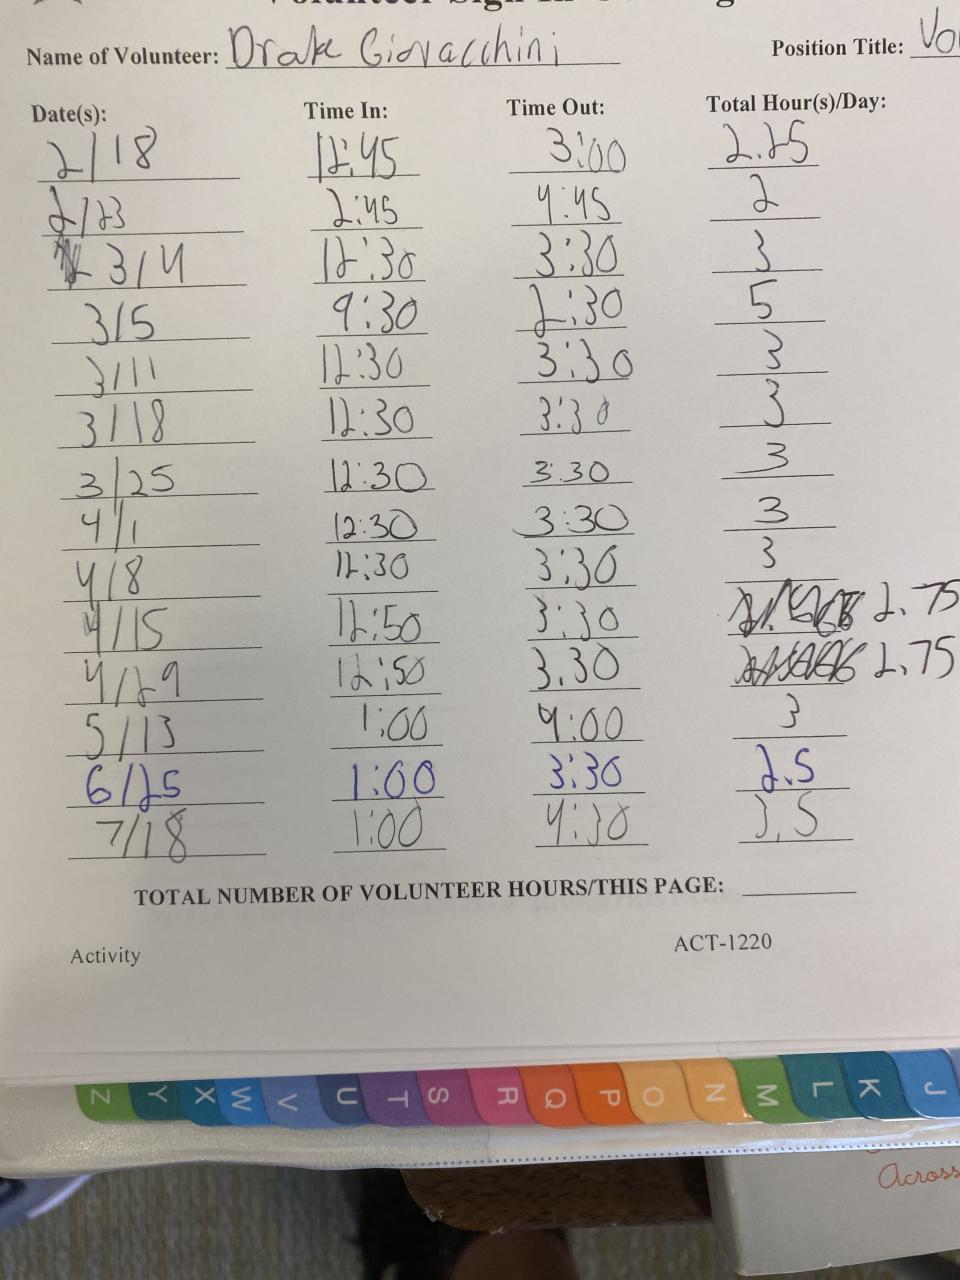 Name of Volunteer: Drake Giovacchini Position Title:
Date(s): Time In: Time Out: Total Hour(s)/Day:
2/18 12:45 3:00 2.25
2/23 2:45 4:45 2
3/4 12:30 3:30 3
3/5 9:30 2:30 5
3/11 12:30 3:30 3
3/18 12:30 3:30 3
3/25 12:30 3:30 3
4/1 12:30 3:30 3
4/8 12:30 3:30 3
4/15 12:50 3:30 2.75
4/29 12:50 3.30 2.75
5/13 1:00 4:00 3
6/25 1:00 3:30 2.5
7/18 1:00 4:30 3.5
TOTAL NUMBER OF VOLUNTEER HOURS/THIS PAGE:
Activity ACT-1220
Z Y X W V U T S R Q P O N M L K J
Across